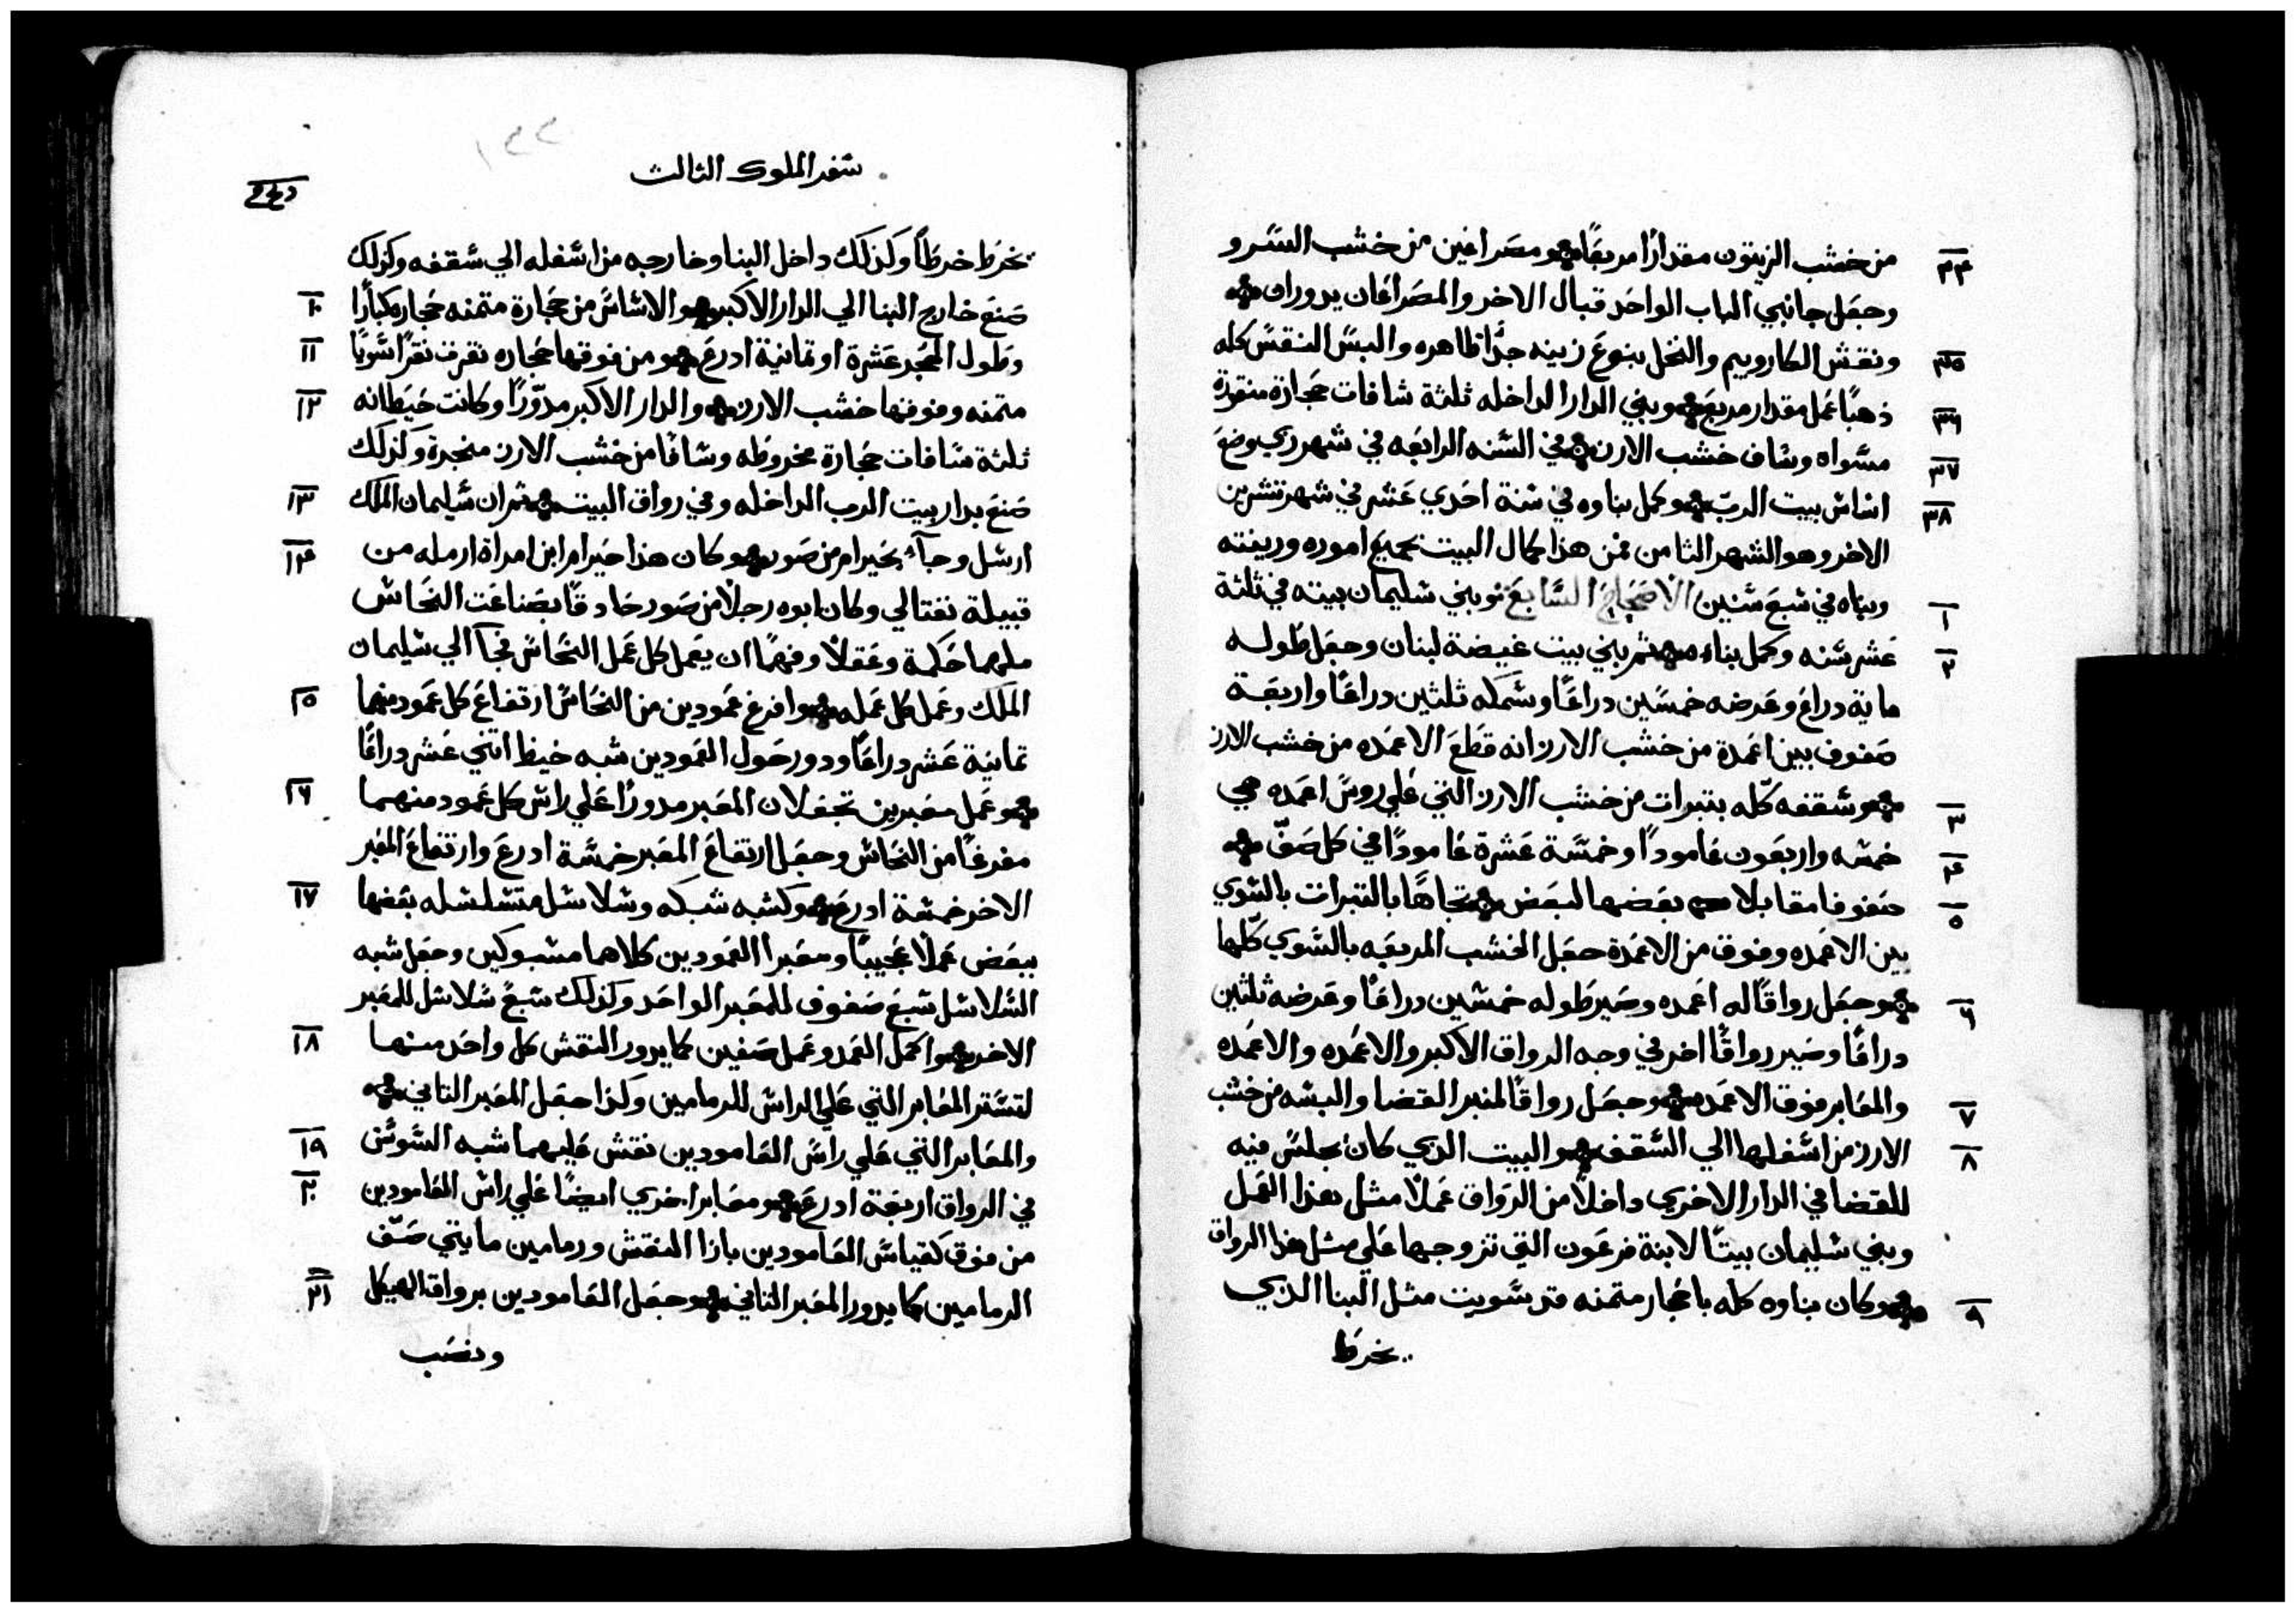 من خشب الزيتون مقدارًا مربعًا ومصراعين من خشب السرو
٣٤
وجعل جانبي الباب الواحد قبال الاخر والمصراعان يدوران
ونقش الكاروبيم والنخل بنوع زينه جدًا ظاهره والبس النقش كله
٣٥
ذهبًا عمل مقدار مربع وبني الدار الداخله ثلثة شافات حجارة منقورة
٣٦
مسواه وشاف خشب الارز في السنه الرابعه في شهر زي وضع
٣٧
اساس بيت الرب وكمل بناوه في سنة احدي عشر في شهر تشرين
٣٨
الاخر وهو الشهر الثامن فمن هذا كمال البيت بجميع اموره وزينته
وبناه في سبع سنين الاصحاح السابع وبني سليمان بيته في ثلثة
١
عشر سنه وكمل بناءه ثم بني بيت غيضة لبنان وجعل طوله
٢
ماية دراع وعرضه خمسين دراعًا وسمكه ثلثين دراعًا واربعة
صفوف بين اعمدة من خشب الارز انه قطع الاعمده من خشب الارز
وسقفه كله بتبرات من خشب الارز التي علي روس اعمده هي
٣
خمسه واربعون عامودًا وخمسة عشرة عامودًا في كل صف
٤
صفوفا مقابلا بعضها لبعض تجاهًا بالتبرات بالسوي
٥
بين الاعمده وفوق من الاعمدة جعل الخشب المربعه بالسوي كلها
وجعل رواقًا له اعمده وصير طوله خمسين دراعًا وعرضه ثلثين
٦
دراعًا وصير رواقًا اخر في وجه الرواق الاكبر والاعمده والاعمده
والمعابر فوق الاعمده وجعل رواقًا لمنبر القضا والبسه من خشب
٧
الارز من اسفلها الي السقف والبيت الذي كان يجلس فيه
٨
للقضا في الدار الاخري داخلًا من الرواق عملًا مثل هذا العمل
وبني سليمان بيتًا لابنة فرعون التي تزوجها علي مثل هذا الرواق
وكان بناوه كله باحجار متمنه قد سويت مثل البنا الذي
٩
يخرط
سفر الملوك الثالث
١٣٣
يخرط خرطًا وكذلك داخل البنا وخارجه من اسفله الي سقفه وكذلك
صنع خارج البنا الي الدار الاكبر والاساس من حجارة متمنه حجاره كبارًا
١٠
وطول الحجر عشرة او تمانية ادرع ومن فوقها حجاره نقرت نقرًا سويًا
١١
متمنه وفوقها خشب الارز والدار الاكبر مدورًا وكانت حيطانه
١٢
ثلثة شافات حجارة مخروطه وشافا من خشب الارز منجرة وكذلك
صنع بدار بيت الرب الداخله وفي رواق البيت ثم ان سليمان الملك
١٣
ارسل وجآء بحيرام من صور وكان هذا حيرام ابن امراة ارمله من
١٤
قبيلة نفتالي وكان ابوه رجلًا من صور حادقًا بصناعت النحاس
ملهما حكمة وعقلًا وفهمًا ان يعمل كل عمل النحاس فجآ الي سليمان
الملك وعمل كل عمله وافرغ عمودين من النحاس ارتفاع كل عمود منهما
١٥
تمانية عشر دراعًا ودور حول العمودين شبه خيط اتني عشر دراعًا
وعمل معبرين تجعلان المعبر مدورًا علي راس كل عمود منهما
١٦
مفرغًا من النحاس وجعل ارتفاع المعبر خمسة ادرع وارتفاع المعبر
الاخر خمسة ادرع وكشبه شبكه وسلاسل متسلسله بعضها
١٧
ببعض عملًا عجيبًا ومعبرا العمودين كلاهما مشبوكين وجعل شبه
السلاسل سبع صفوف للمعبر الواحد وكذلك سبع سلاسل للمعبر
الاخر واكمل العمد وعمل صفين كما يدور النقش كل واحد منها
١٨
لتستر المعابر التي علي الراس للرمامين وكذا جعل المعبر التاني
والمعابر التي علي راس العامودين نقش عليهما شبه السوسن
١٩
في الرواق اربعة ادرع ومعابر اخري ايضًا علي راس العامودين
٢٠
من فوق كقياس العامودين بازا النقش ورمامين مايتي صف
الرمامين كما يدور المعبر التاني وجعل العامودين برواق الهيكل
٢١
ونصب